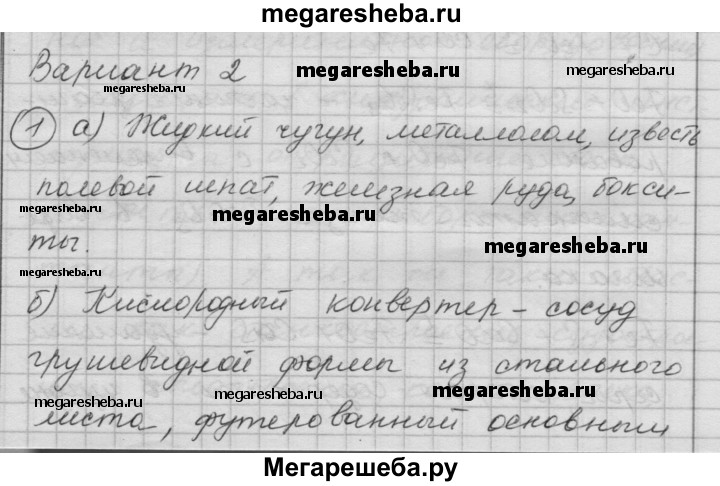 megaresheba.ru
Вариант 2
megaresheba.ru
megaresheba.ru
megaresheba.ru
1 а) Жидкий чугун, металлолом, известь
полевой шпат, железная руда, бокси-
megaresheba.ru
ты.
megaresheba.ru
megaresheba.ru
б) Кислородный конвертер – сосуд
грушевидной формы из стального
megaresheba.ru
megaresheba.ru
megaresheba.ru
листа, футерованный основным
Мегарешеба.ру